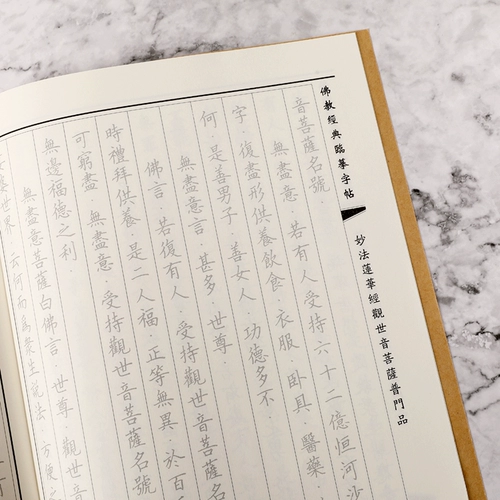 佛教經典臨摹字帖
妙法蓮華經觀世音菩薩普門品
音菩薩名號
無盡意 若有人受持六十二億恒河沙
字 復盡形供養飲食 衣服 臥具 醫藥
何 是善男子 善女人 功德多不
無盡意言 甚多 世尊
佛言 若復有人 受持觀世音菩薩名
時禮拜供養 是二人福 正等無異 於百
可窮盡 無盡意 受持觀世音菩薩名號
無邊福德之利
無盡意菩薩白佛言 世尊 觀世音
世界 云何而為眾生說法 方便之